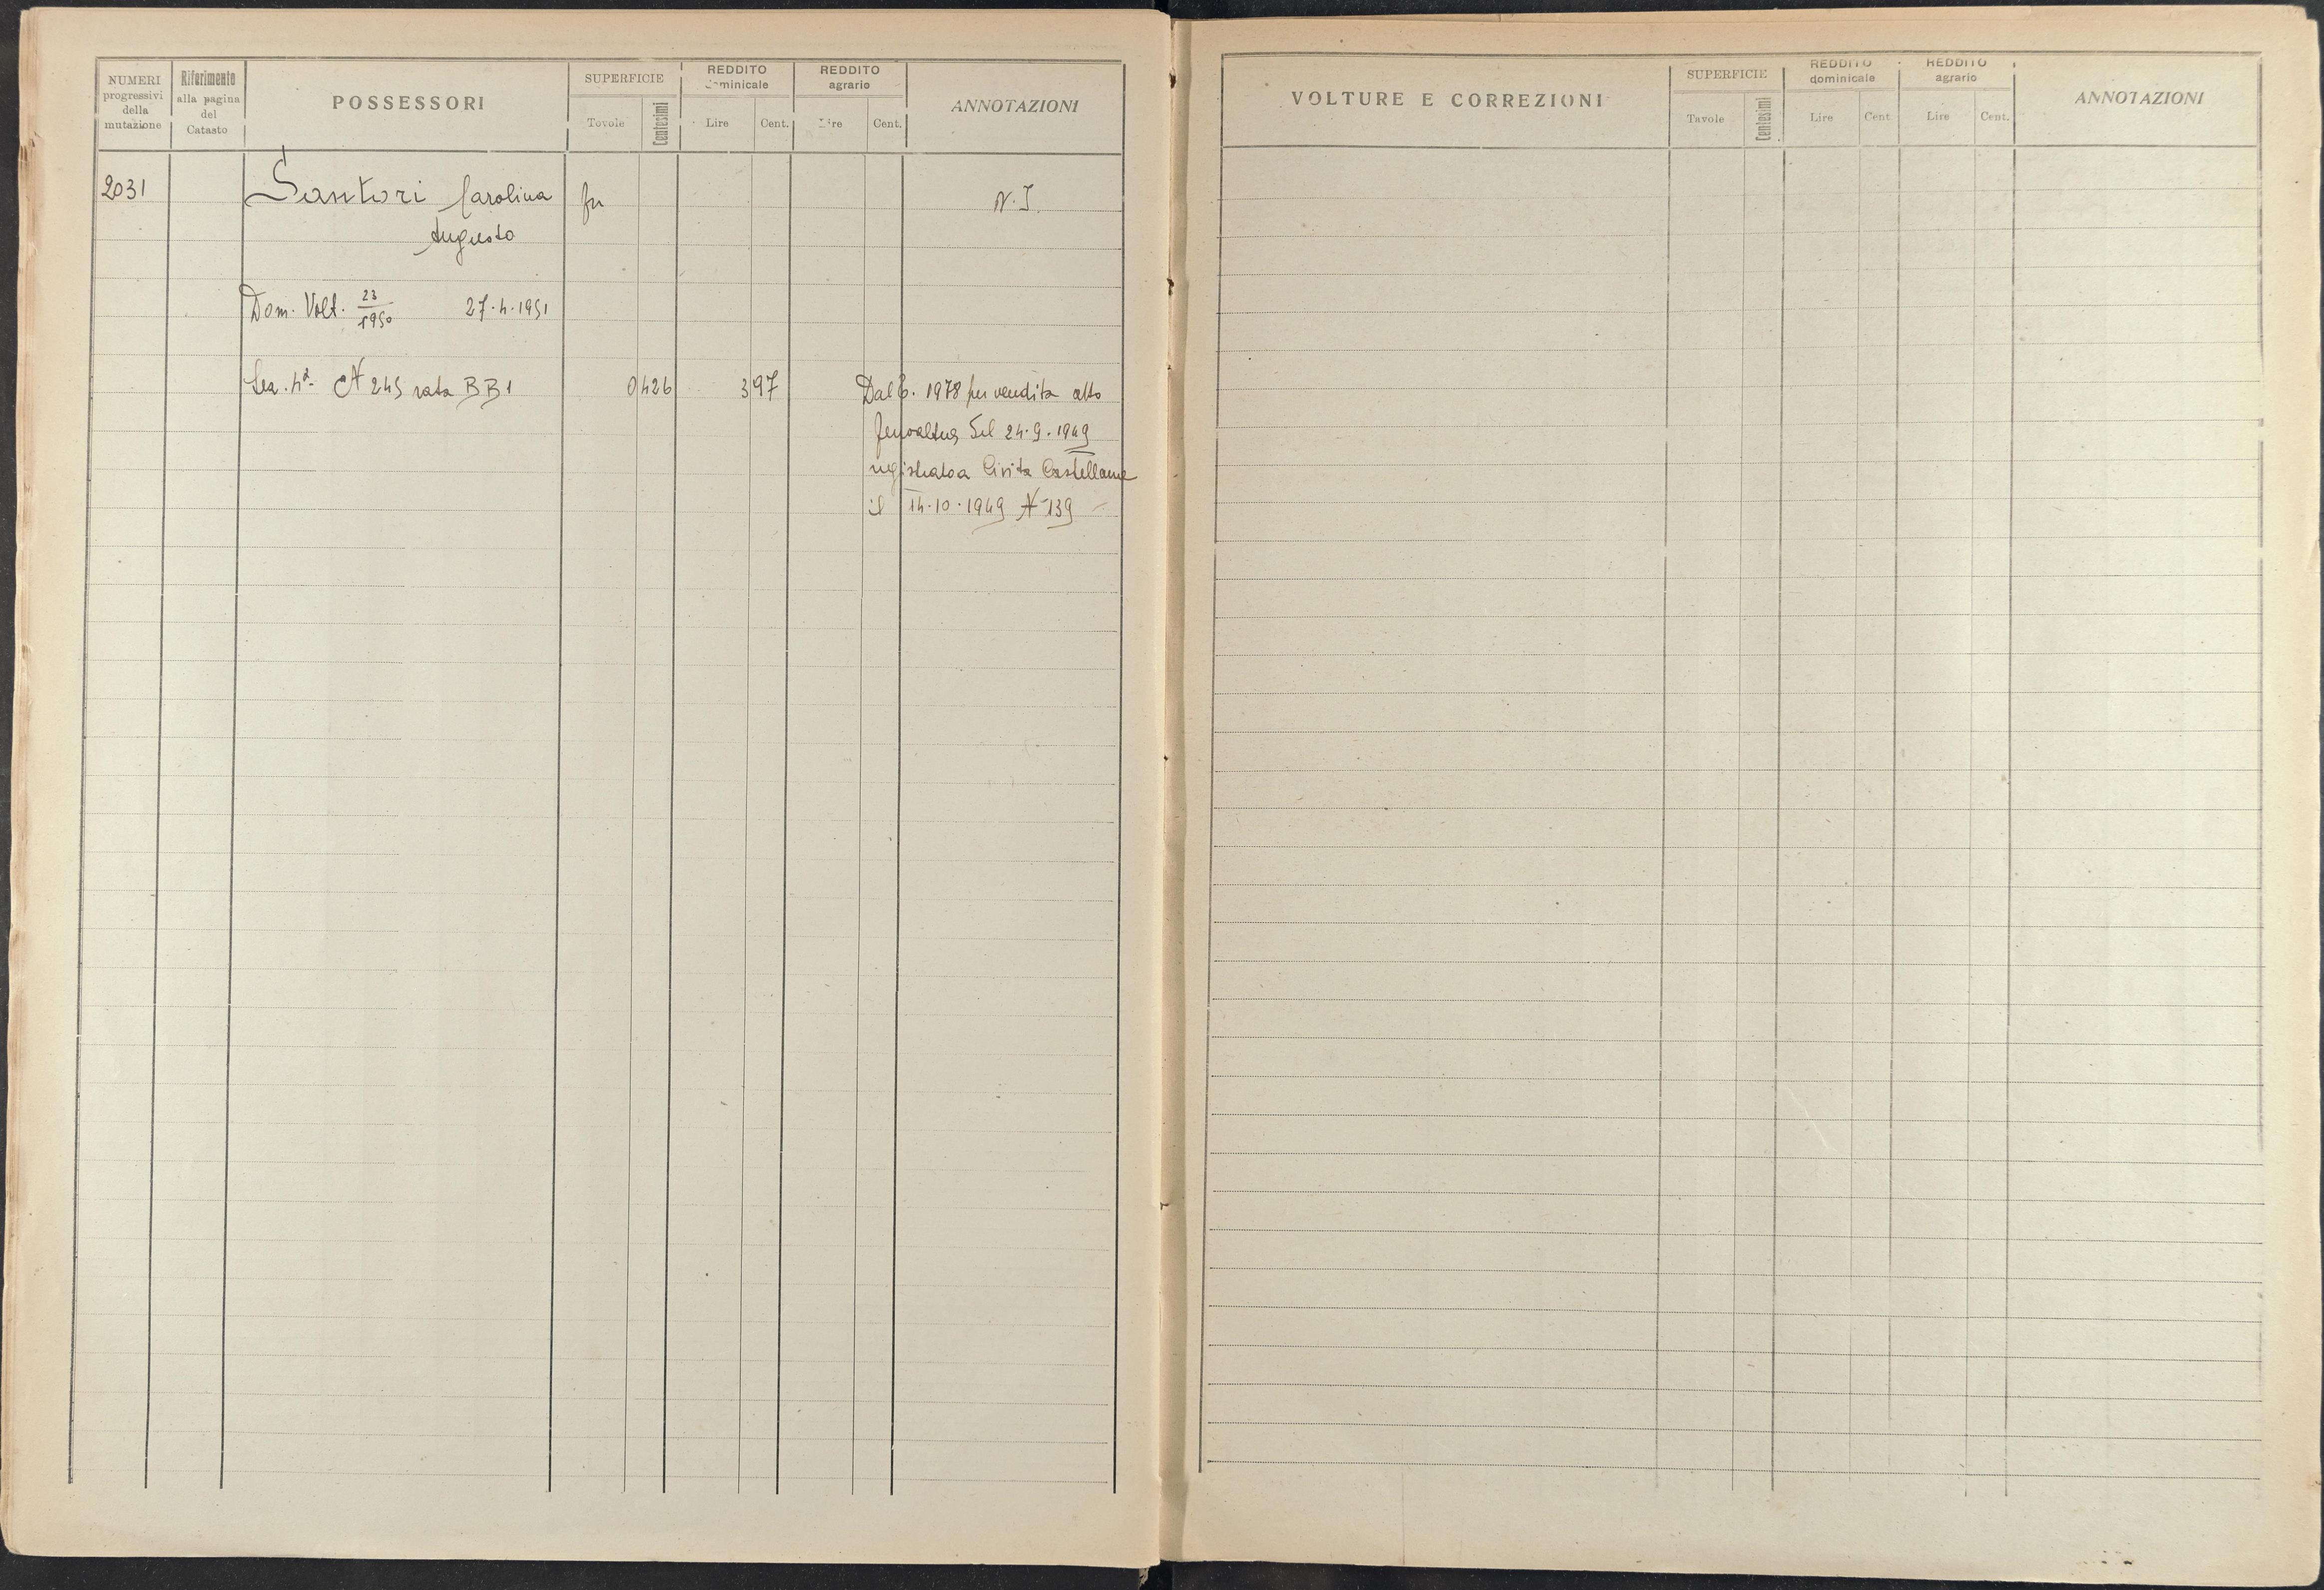 NUMERI progressivi della mutazione
Riferimento alla pagina del Catasto
POSSESSORI
SUPERFICIE
Tavole
Centesimi
REDDITO dominicale
Lire
Cent.
REDDITO agrario
Lire
Cent.
ANNOTAZIONI
2031 Santori Carolina fu N. I.
Augusto
Dom. Volt. 23/1950 27.4.1951
Sez. 4ª N 245 rata BB1 0 426 3 97 Dal C. 1978 per vendita atto
del 24.9.1949
registrato a Civita Castellana
il 14.10.1949 N 139
VOLTURE E CORREZIONI
SUPERFICIE
Tavole
Centesimi
REDDITO dominicale
Lire
Cent
REDDITO agrario
Lire
Cent.
ANNOTAZIONI